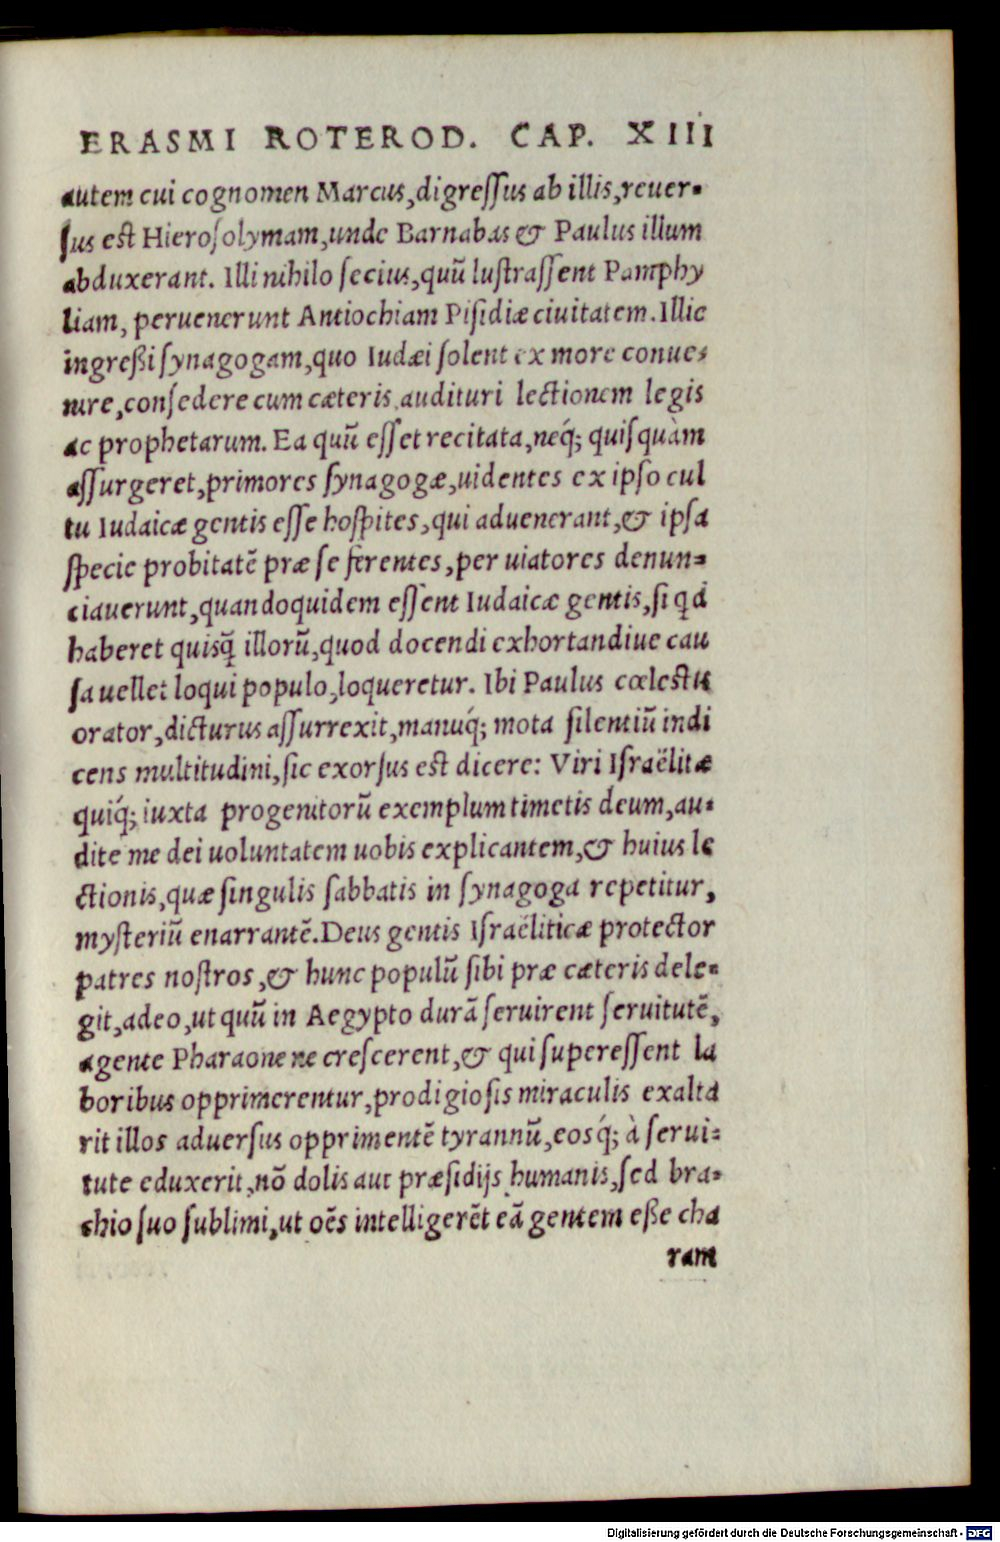 ERASMI ROTEROD. CAP. XIII
autem cui cognomen Marcus,digreſſus ab illis,reuer-
ſus eſt Hieroſolymam,unde Barnabas & Paulus illum
abduxerant. Illi nihilo ſecius,quū luſtraſſent Pamphy
liam, peruenerunt Antiochiam Piſidiæ ciuitatem.Illic
ingreßi ſynagogam,quo Iudæi ſolent ex more conue-
nire,conſedere cum cæteris,audituri lectionem legis
ac prophetarum. Ea quū eſſet recitata,neq́; quiſquàm
aſſurgeret,primores ſynagogæ,uidentes ex ipſo cul
tu Iudaicæ gentis eſſe hoſpites,qui aduenerant,& ipſa
ſpecie probitatē præ ſe ferentes,per uiatores denun-
ciauerunt,quandoquidem eſſent Iudaicæ gentis,ſi qd
haberet quisq̃ illorū,quod docendi exhortandiue cau
ſa uellet loqui populo,loqueretur. Ibi Paulus cœleſtis
orator,dicturus aſſurrexit,manuq́; mota ſilentiū indi
cens multitudini,ſic exorſus eſt dicere: Viri Iſraëlitæ
quiq́; iuxta progenitorū exemplum timetis deum,au-
dite me dei uoluntatem uobis explicantem,& huius le
ctionis,quæ ſingulis ſabbatis in ſynagoga repetitur,
myſteriū enarrantē.Deus gentis Iſraëliticæ protector
patres noſtros,& hunc populū ſibi præ cæteris dele-
git,adeo,ut quū in Aegypto durā ſeruirent ſeruitutē,
agente Pharaone ne creſcerent,& qui ſupereſſent la
boribus opprimerentur,prodigioſis miraculis exalta
rit illos aduerſus opprimentē tyrannū,eosq́; à ſerui-
tute eduxerit,nō dolis aut præſidijs humanis,ſed bra-
chio ſuo ſublimi,ut oēs intelligerēt eā gentem eße cha
ram
Digitalisierung gefördert durch die Deutsche Forschungsgemeinschaft - DFG